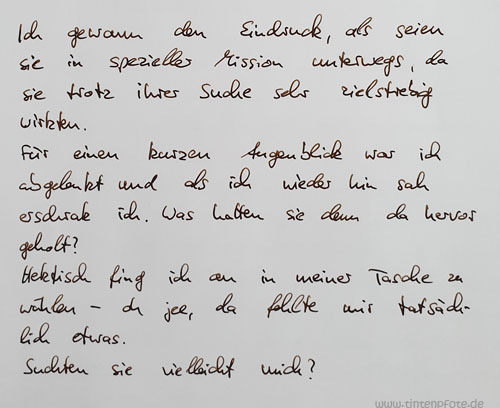 Ich gewann den Eindruck, als seien
sie in spezieller Mission unterwegs, da
sie trotz ihrer Suche sehr zielstrebig
wirkten.
Für einen kurzen Augenblick war ich
abgelenkt und als ich wieder hin sah
erschrak ich. Was hatten sie denn da hervor
geholt?
Hektisch fing ich an in meiner Tasche zu
wühlen – oh jee, da fehlte mir tatsäch-
lich etwas.
Suchten sie vielleicht mich?
www.tintenpfote.de